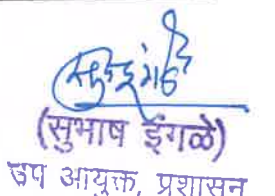 (सुभाष ईंगळे)
उप आयुक्त, प्रशासन